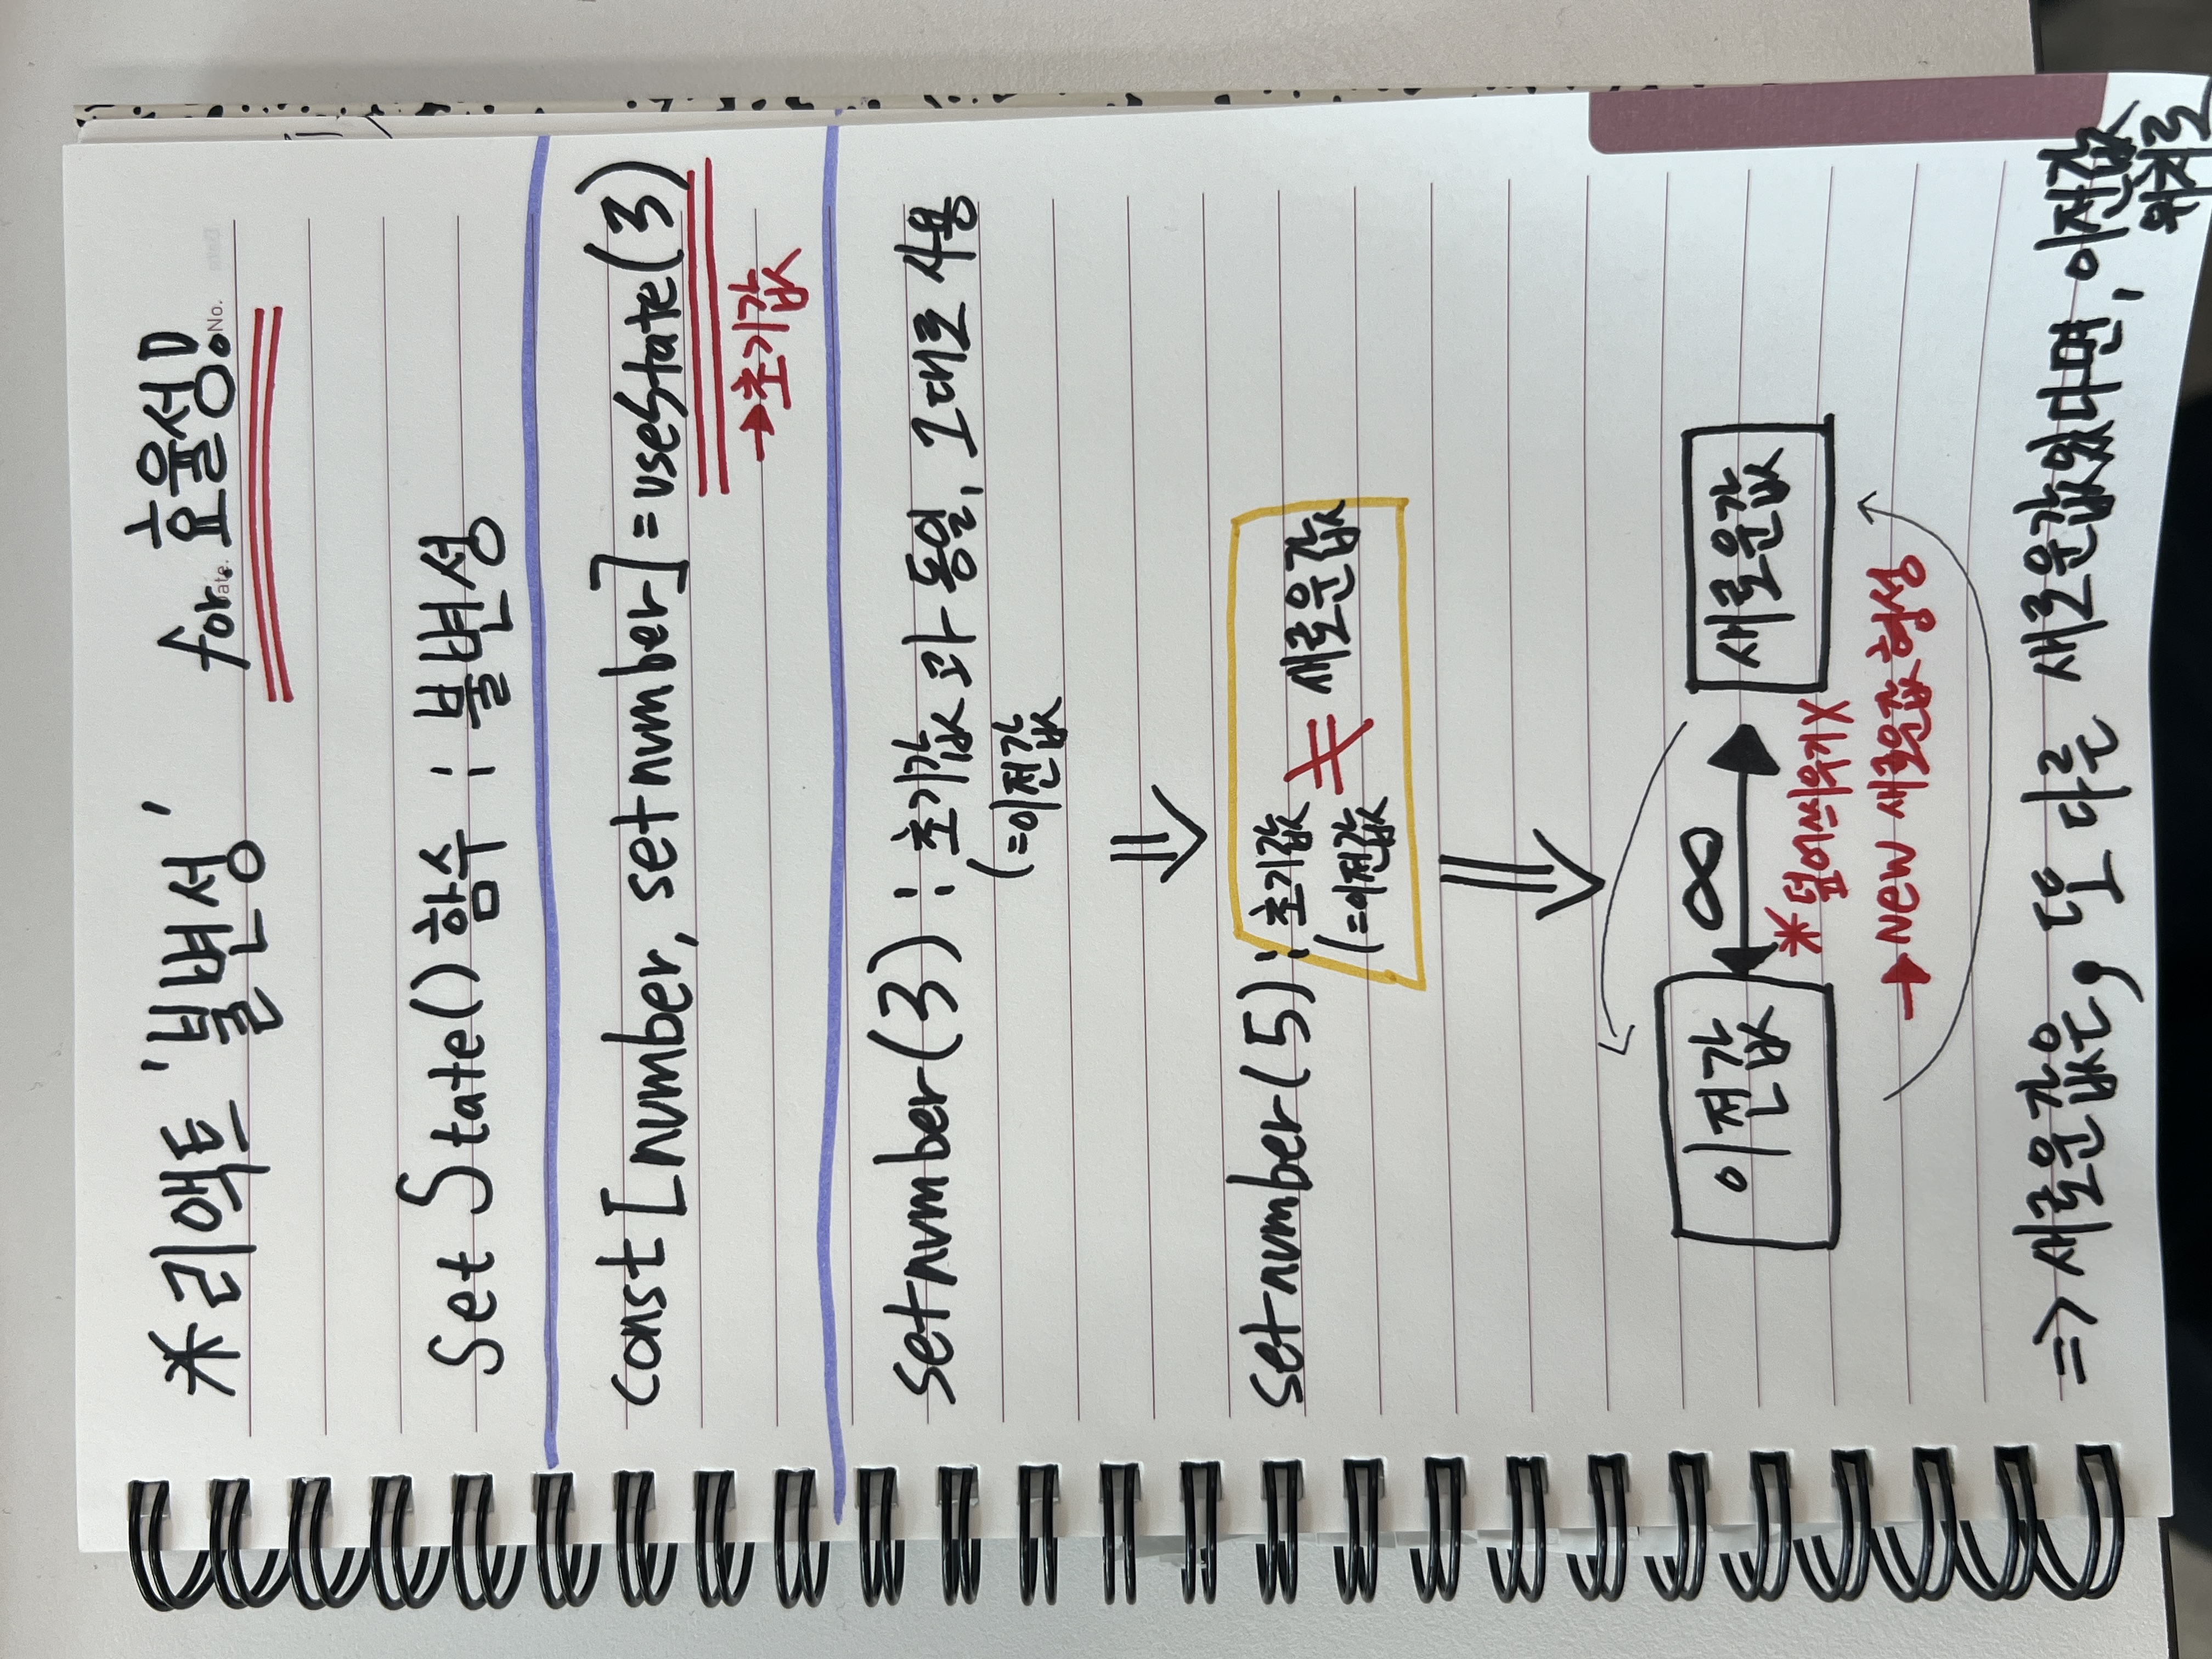 ※리액트 '불변성' for. 효율성!!
Set State() 함수 : 불변성
const [number, setnumber] = useState(3)
→초기값
setnumber(3) : 초기값과 동일, 그대로 사용
(=이전값
setnumber(5) : 초기값 ≠ 새로운값
(=이전값
∞
이전값 새로운값
※덮어씌우기X
→ New 새로운값 형성
=> 새로운값은, 또 다른 새로운값있다면, 이전값
위치로